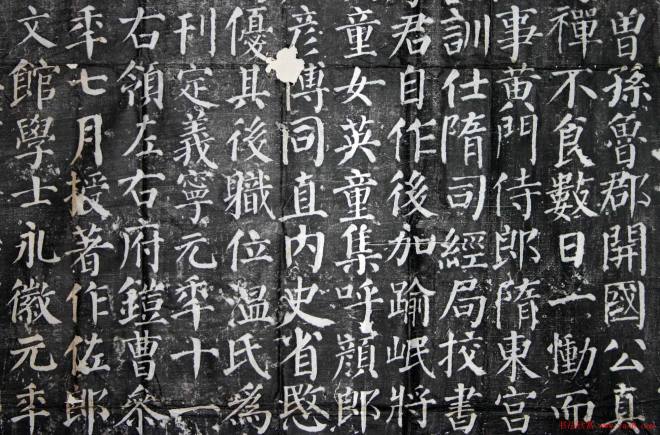 曾孫魯郡開國公真
禪不食數日一慟而
事黃門侍郎隋東宮
訓仕隋司經局挍書
君自作後加踰岷將
童女英童集呼顏郎
彦博同直内史省愍
優其後職位溫氏為
刊定義寧元年十一
右領左右府鎧曹參
年七月授著作佐郎
文館學士永徽元年
书法欣赏